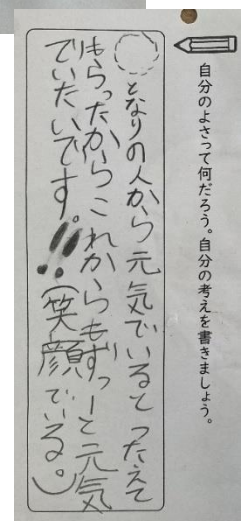 自分のよさって何だろう。自分の考えを書きましょう。
となりの人から元気でいるとつたえて
もらったからこれからもずっーと元気
でいたいです。!!(笑顔でいる。)